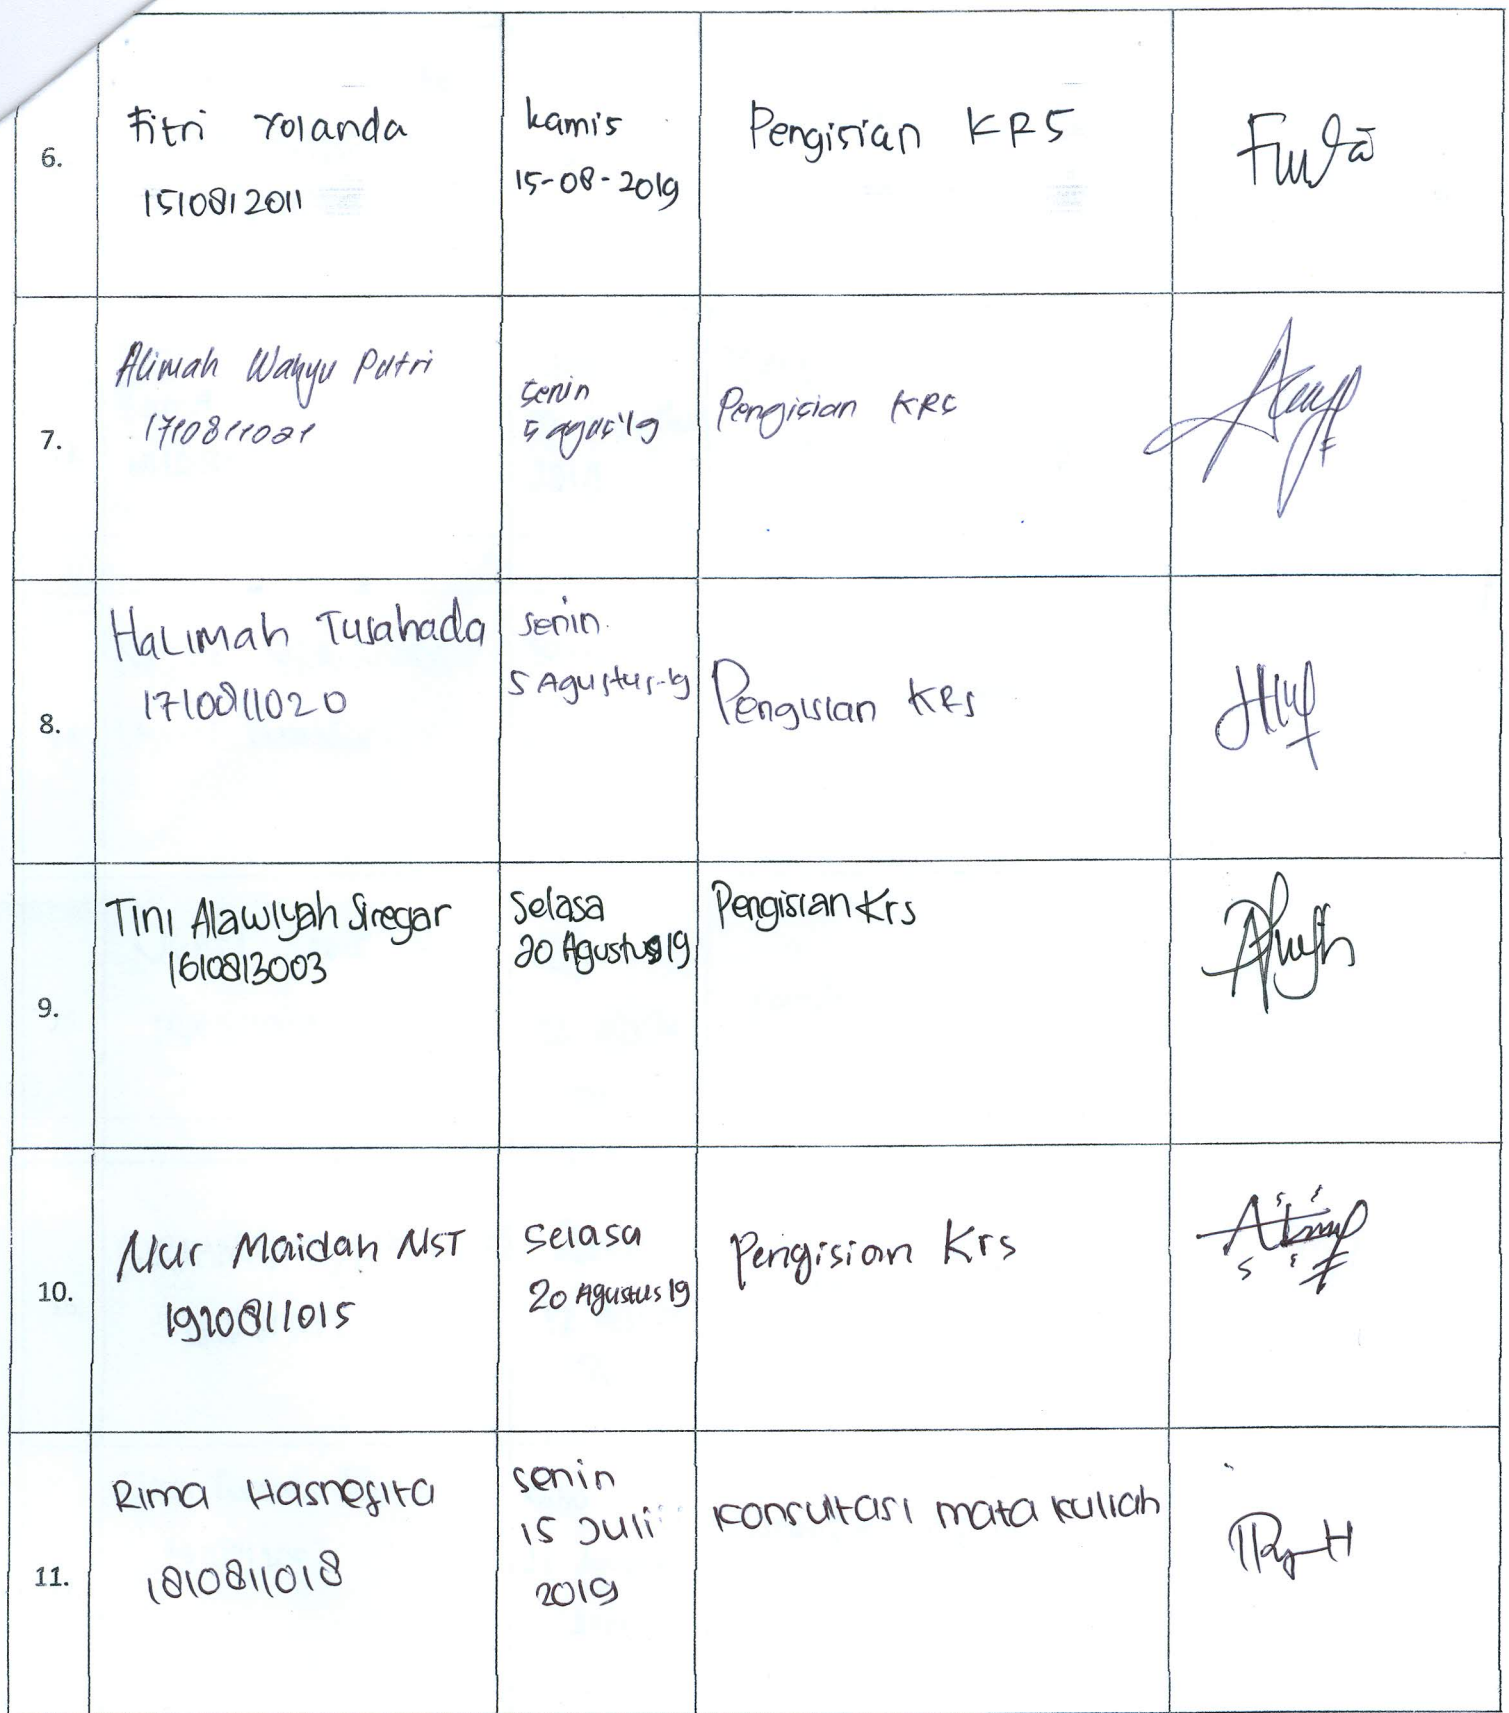 6.
Fitri Yolanda
1510812011
kamis
15-08-2019
Pengisian KRS
7.
Alimah Wahyu Putri
1710811021
Senin
5 agus'19
Pengisian KRS
8.
Halimah Tusahada
1710811020
senin
5 Agustus-19
Pengisian KRS
9.
Tini Alawiyah Siregar
1610813003
Selasa
20 Agustus 19
Pengisian Krs
10.
Nur Maidah NST
1910811015
Selasa
20 Agustus 19
Pengisian Krs
11.
Rima Hasnesita
1810811018
senin
15 Juli
2019
Konsultasi mata kuliah